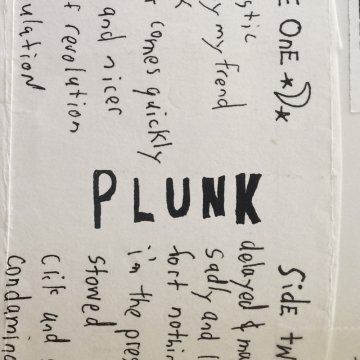 E OnE
stic
y my frend
k
r comes quickly
and nicer
f revolution
ulation
PLUNK
SiDE tw
delayed & mu
sadly and l
fort nothin
i'm the pres
stoned
Clik and
condamin